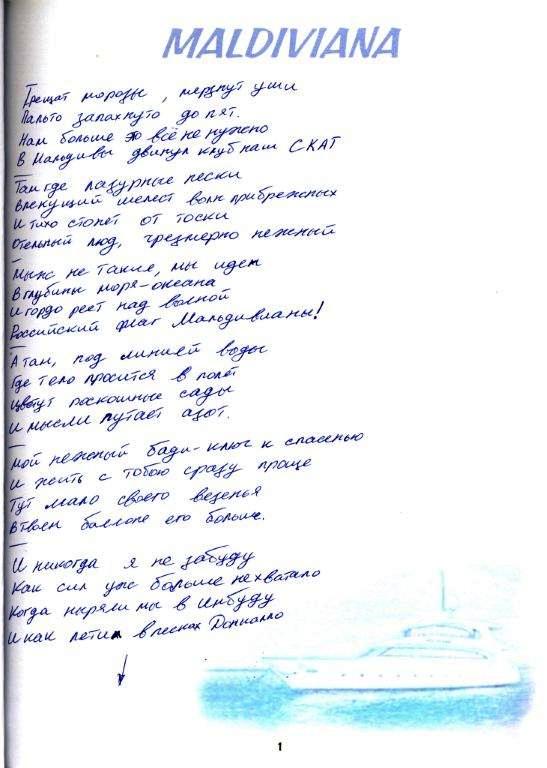 MALDIVIANA
Трещат морозы, мерзнут уши
Пальто запахнуто до пят.
Нам больше это всё не нужно
В Мальдивы двинул клуб наш СКАТ
Там где лазурные пески
Влекущий шелест волн прибрежных
И тихо стонет от тоски
Отельный люд, чрезмерно нежный
Мы ж не такие, мы идем
В глубины моря-океана
И гордо реет над волной
Российский флаг Мальдивианы!
А там, под линией воды
Где тело просится в полёт
Цветут роскошные сады
И мысли путает азот.
Мой нежный бади-ключ к спасенью
И жить с тобою сразу проще
Тут мало своего везенья
В твоем баллоне его больше.
И никогда я не забуду
Как сил уж больше не хватало
Когда ныряли мы в Инбуду
И как летим в песках
1